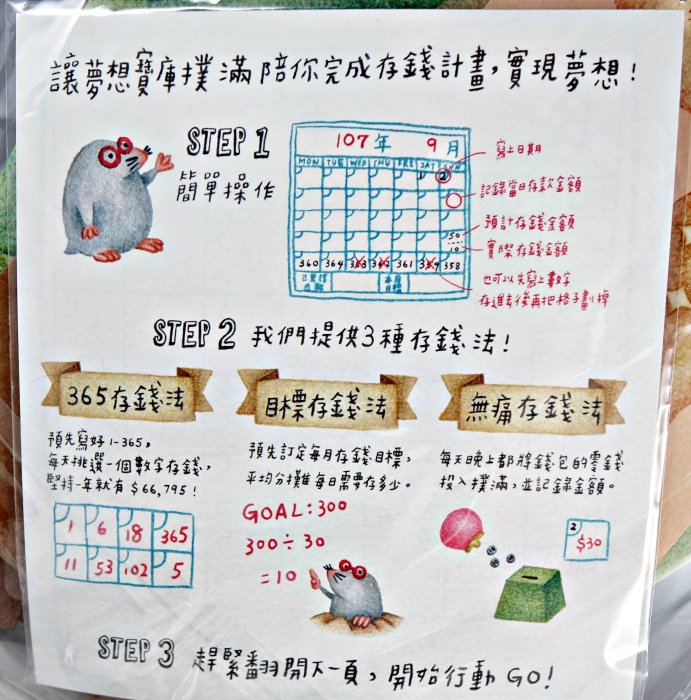 讓夢想寶庫撲滿陪你完成存錢計畫,實現夢想!
STEP 1
簡單操作
107年 9月
MON TUE WED THU FRI SAT SUN
1 2
50
10
360 364 363 362 361 359 358
寫上日期
記錄當日存款金額
預計存錢金額
實際存錢金額
也可以先寫上數字
存進去後再把格子劃掉
STEP 2 我們提供3種存錢法!
365存錢法
預先寫好1-365,
每天挑選一個數字存錢,
堅持一年就有$66,795!
1 6 18 365
11 53 102 5
目標存錢法
預先訂定每月存錢目標,
平均分攤每日需要存多少。
GOAL:300
300÷30
=10
無痛存錢法
每天晚上都將錢包的零錢
投入撲滿,並記錄金額。
2
$30
STEP 3 趕緊翻開下一頁,開始行動GO!